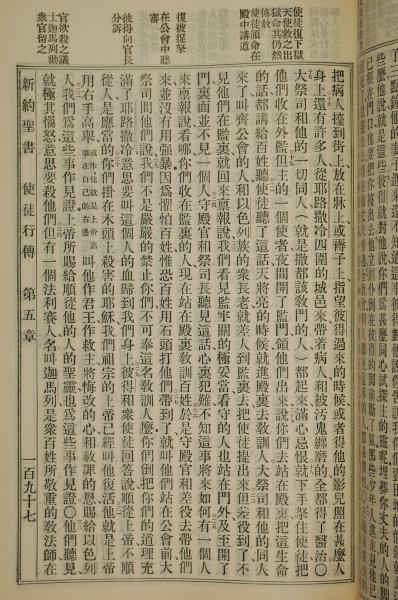 使徒復下獄
天使救之出
獄命其仍然
傳教
使徒領命在
殿中講道
復被提拏
在公會中聽
審
彼得向官長
分訴
官欲殺之議
士迦馬列勸
衆官留之
把病人擡到街上放在牀上或褥子上指望彼得過來的時候或者得他的影兒照在甚麼人
身上還有許多人從耶路撒冷四圍的城邑來帶著病人和被汚鬼纏磨的全都得了醫治〇
大祭司和他的一切同人（就是撒都該敎門的人）都起來滿心忌恨就下手拏住使徒把
他們收在外監但主的一個使者夜間開了監門領他們出來說你們去站在殿裏把這生命
的話都講給百姓聽使徒聽了這話天將亮的時候就進殿裏去敎訓人大祭司和他的同人
來了叫齊公會的人和以色列族的衆長老就差人到監裏去把使徒提出來但差役到了不
見他們在監裏就回來禀報說我們看見監牢關的極妥當看守的人也站在門外及至開了
門裏面並不見一個人守殿官和祭司長聽見這話心裏犯難不知這事將來如何有一個人
來禀報說看哪你們收在監裏的人現在站在殿裏敎訓百姓於是守殿官和差役去帶他們
來並沒有用强暴因爲懼怕百姓惟恐百姓用石頭打他們帶到了就叫他們站在公會前大
祭司問他們說我們不是嚴嚴的禁止你們不可奉這名敎訓人麼你們倒把你們的道理充
滿了耶路撒冷意思要叫這個人的血歸到我們身上彼得和衆使徒回答說順從上帝不順
從人是應當的你們掛在木頭上殺害的耶穌我們祖宗的上帝已經叫他復活他就是上帝
用右手高舉叫他作君王作救主將悔改的心和赦罪的恩賜給以色列
人我們爲這些事作見證上帝所賜給順從他的人的聖靈也爲這些事作見證〇他們聽見
就極其惱怒意思要殺他們但有一個法利賽人名叫迦馬列是衆百姓所敬重的敎法師在
新約聖書 使徒行傳 第五章 一百九十七